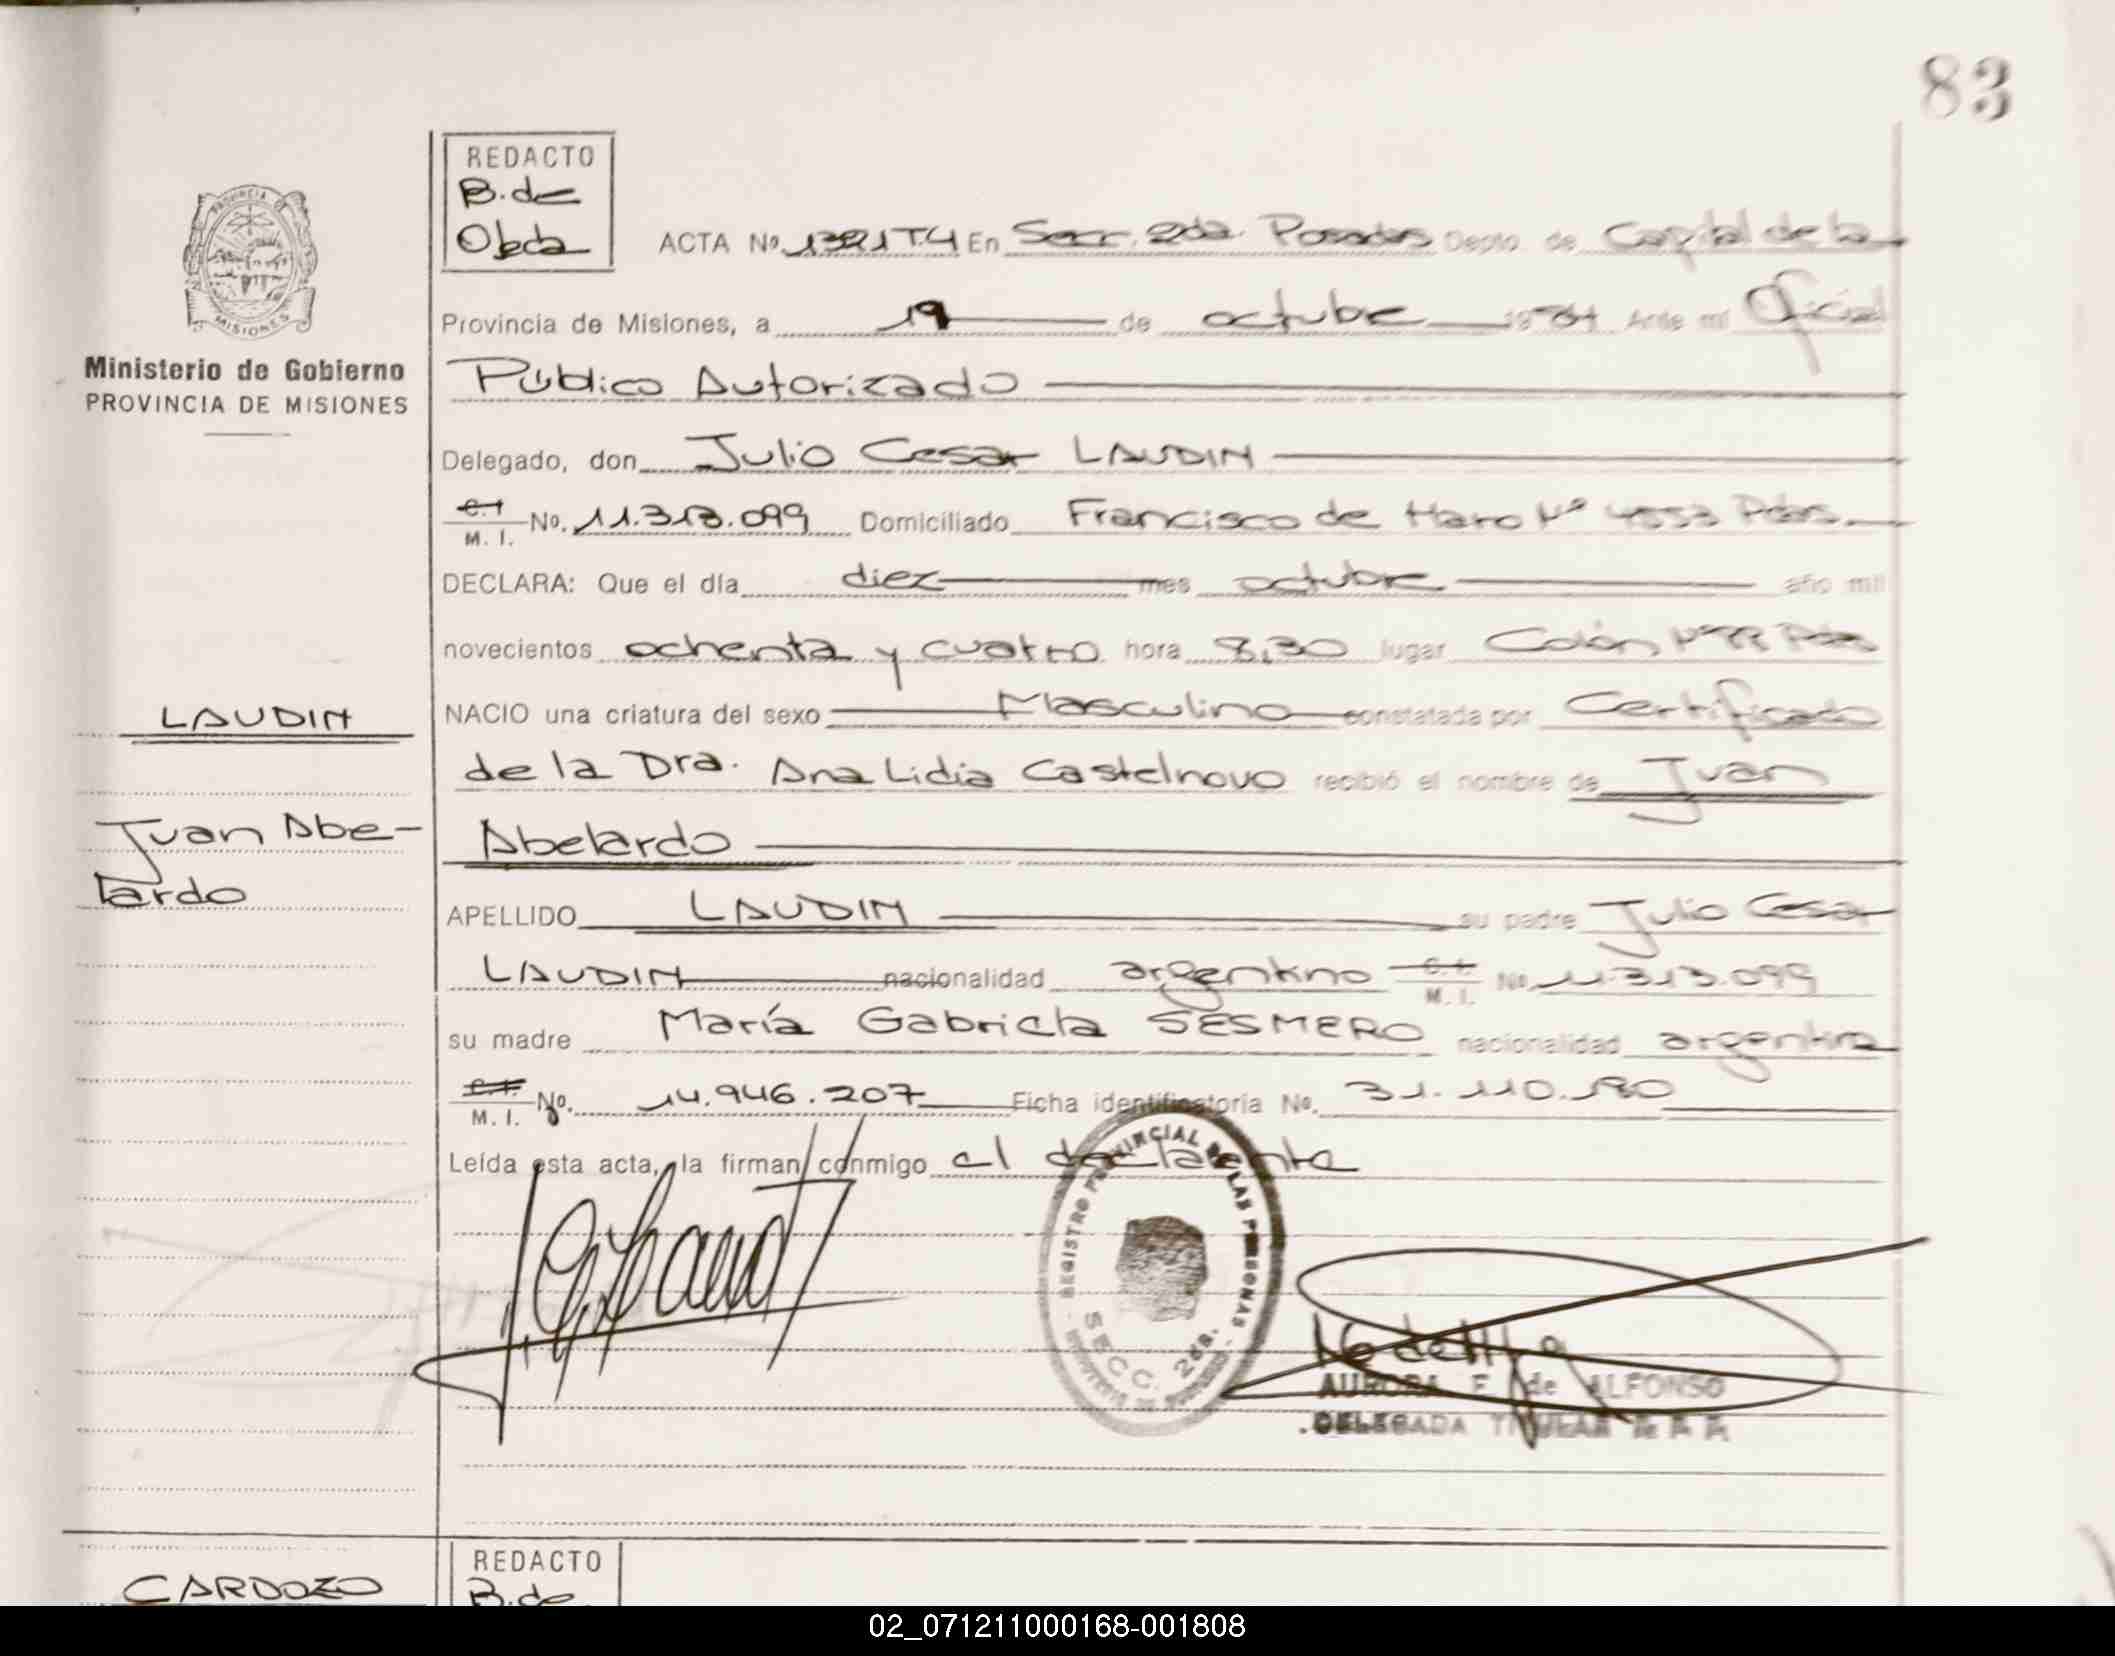 83
REDACTO
B. de
Ojeda
ACTA No. 1321 T.4 En Secc. 2da. Posadas Depto. de Capital de la
PROVINCIA DE
MISIONES
Provincia de Misiones, a 19 de octubre 1984 Ante mí Oficial
Ministerio de Gobierno
PROVINCIA DE MISIONES
Público Autorizado
Delegado, don Julio Cesar LAUDIN
C.I.
M. I. No. 11.313.099 Domiciliado Francisco de Haro Nº 4553 Pdas.
DECLARA: Que el día diez mes octubre año mil
novecientos ochenta y cuatro hora 8,30 lugar Colón Nº Pdas
LAUDIN
NACIO una criatura del sexo Masculino constatada por Certificado
de la Dra. Ana Lidia Castelnovo recibió el nombre de Juan
Juan Abe-
lardo
Abelardo
APELLIDO LAUDIN su padre Julio Cesar
LAUDIN nacionalidad argentino C.I.
M. I. No. 11.313.099
su madre María Gabriela SESMERO nacionalidad argentina
C.I.
M. I. No. 14.946.207 Ficha identificatoria No. 31.110.180
Leída esta acta, la firman conmigo el declarante
REGISTRO PROVINCIAL DE LAS PERSONAS
SECC. 2da.
AURORA F. de ALFONSO
DELEGADA TITULAR
CARDOZO
REDACTO
B. de
02_071211000168-001808